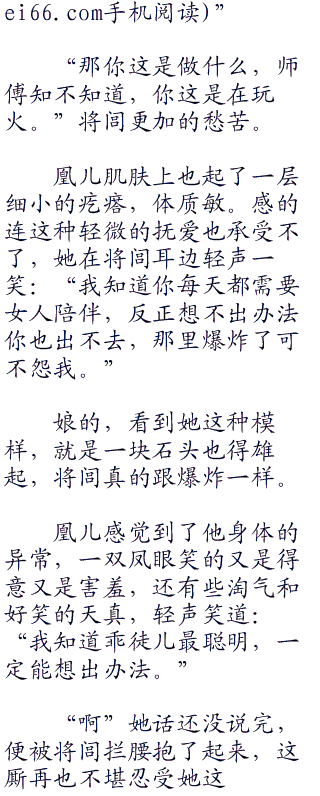 ei66.com手机阅读)”
“那你这是做什么，师
傅知不知道，你这是在玩
火。”将闾更加的愁苦。
凰儿肌肤上也起了一层
细小的疙瘩，体质敏。感的
连这种轻微的抚爱也承受不
了，她在将闾耳边轻声一
笑：“我知道你每天都需要
女人陪伴，反正想不出办法
你也出不去，那里爆炸了可
不怨我。”
娘的，看到她这种模
样，就是一块石头也得雄
起，将闾真的跟爆炸一样。
凰儿感觉到了他身体的
异常，一双凤眼笑的又是得
意又是害羞，还有些淘气和
好笑的天真，轻声笑道：
“我知道乖徒儿最聪明，一
定能想出办法。”
“啊”她话还没说完，
便被将闾拦腰抱了起来，这
厮再也不堪忍受她这